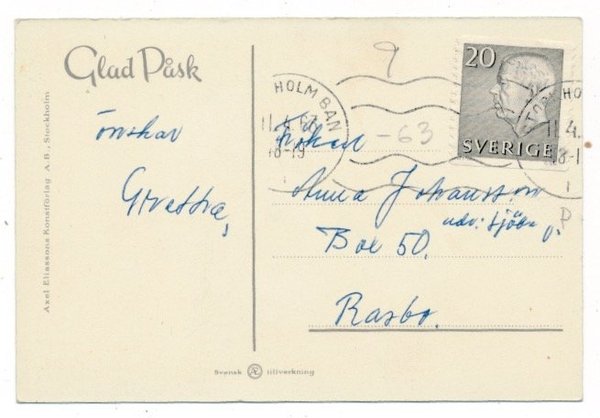 Glad Påsk
önskar
Axel Eliassons Konstförlag A.B., Stockholm
HOLM BAN
11.4.63
18-19
9
-63
20
SVERIGE
HO
11.4.
18-1
Fröken
Anna Johansson
adr. Sjöbo
Box 50.
Rasbo.
Svensk Æ tillverkning